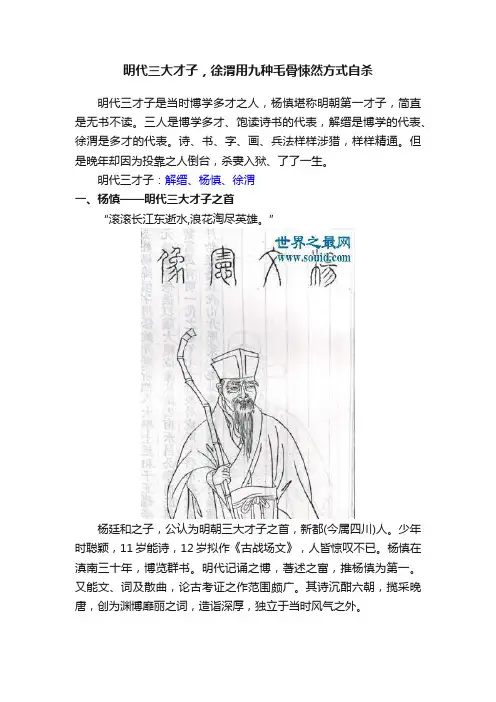 明代三大才子，徐渭用九种毛骨悚然方式自杀
明代三才子是当时博学多才之人，杨慎堪称明朝第一才子，简直
是无书不读。三人是博学多才、饱读诗书的代表，解缙是博学的代表、
徐渭是多才的代表。诗、书、字、画、兵法样样涉猎，样样精通。但
是晚年却因为投靠之人倒台，杀妻入狱、了了一生。
明代三才子：解缙、杨慎、徐渭
一、杨慎——明代三大才子之首
“滚滚长江东逝水,浪花淘尽英雄。”
世界之最网
www.souid.com
像憲文楊
杨廷和之子，公认为明朝三大才子之首，新都(今属四川)人。少年
时聪颖，11岁能诗，12岁拟作《古战场文》，人皆惊叹不已。杨慎在
滇南三十年，博览群书。明代记诵之博，著述之富，推杨慎为第一。
又能文、词及散曲，论古考证之作范围颇广。其诗沉酣六朝，揽采晚
唐，创为渊博靡丽之词，造诣深厚，独立于当时风气之外。